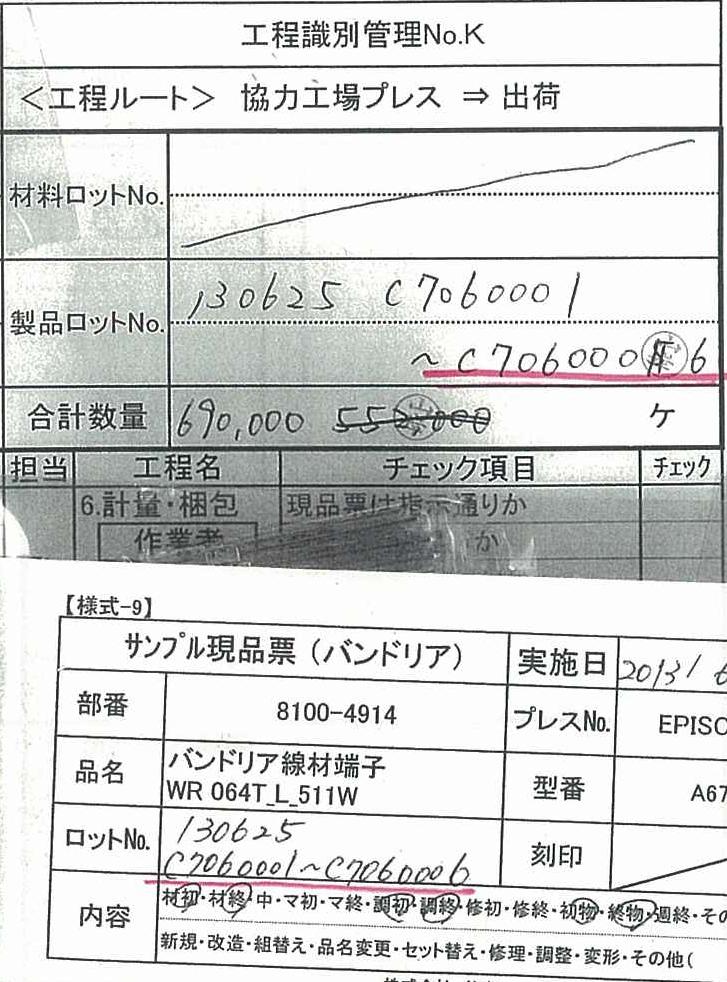 工程識別管理No.K
＜工程ルート＞ 協力工場プレス ⇒ 出荷
材料ロットNo.
製品ロットNo.
130625 C7060001
～C7060006
合計数量 690,000 552,000 ケ
担当 工程名 チェック項目 チェック
6.計量・梱包 現品票は指示通りか
作業者 か
【様式-9】
サンプル現品票（バンドリア） 実施日 2013/ 6
部番 8100-4914 プレスNo. EPISO
品名 バンドリア線材端子
WR 064T_L_511W
型番 A67
ロットNo. 130625
C7060001～C7060006
刻印
内容 材初・材終・中・マ初・マ終・調初・調終・修初・修終・初物・終物・週終・その
新規・改造・組替え・品名変更・セット替え・修理・調整・変形・その他(